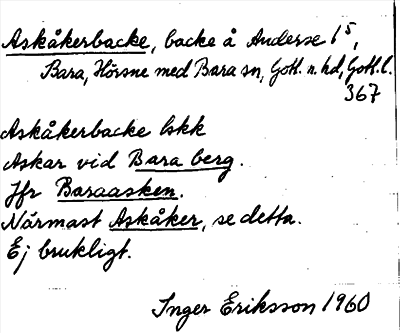 Askåkerbacke, backe å Anderse 1⁵,
Bara, Hörsne med Bara sn, Gotl. n. hd, Gotl. l.
367
Askåkerbacke lskk
Askar vid Bara berg.
Jfr Baraasken.
Närmast Askåker, se detta.
Ej brukligt.
Inger Eriksson 1960